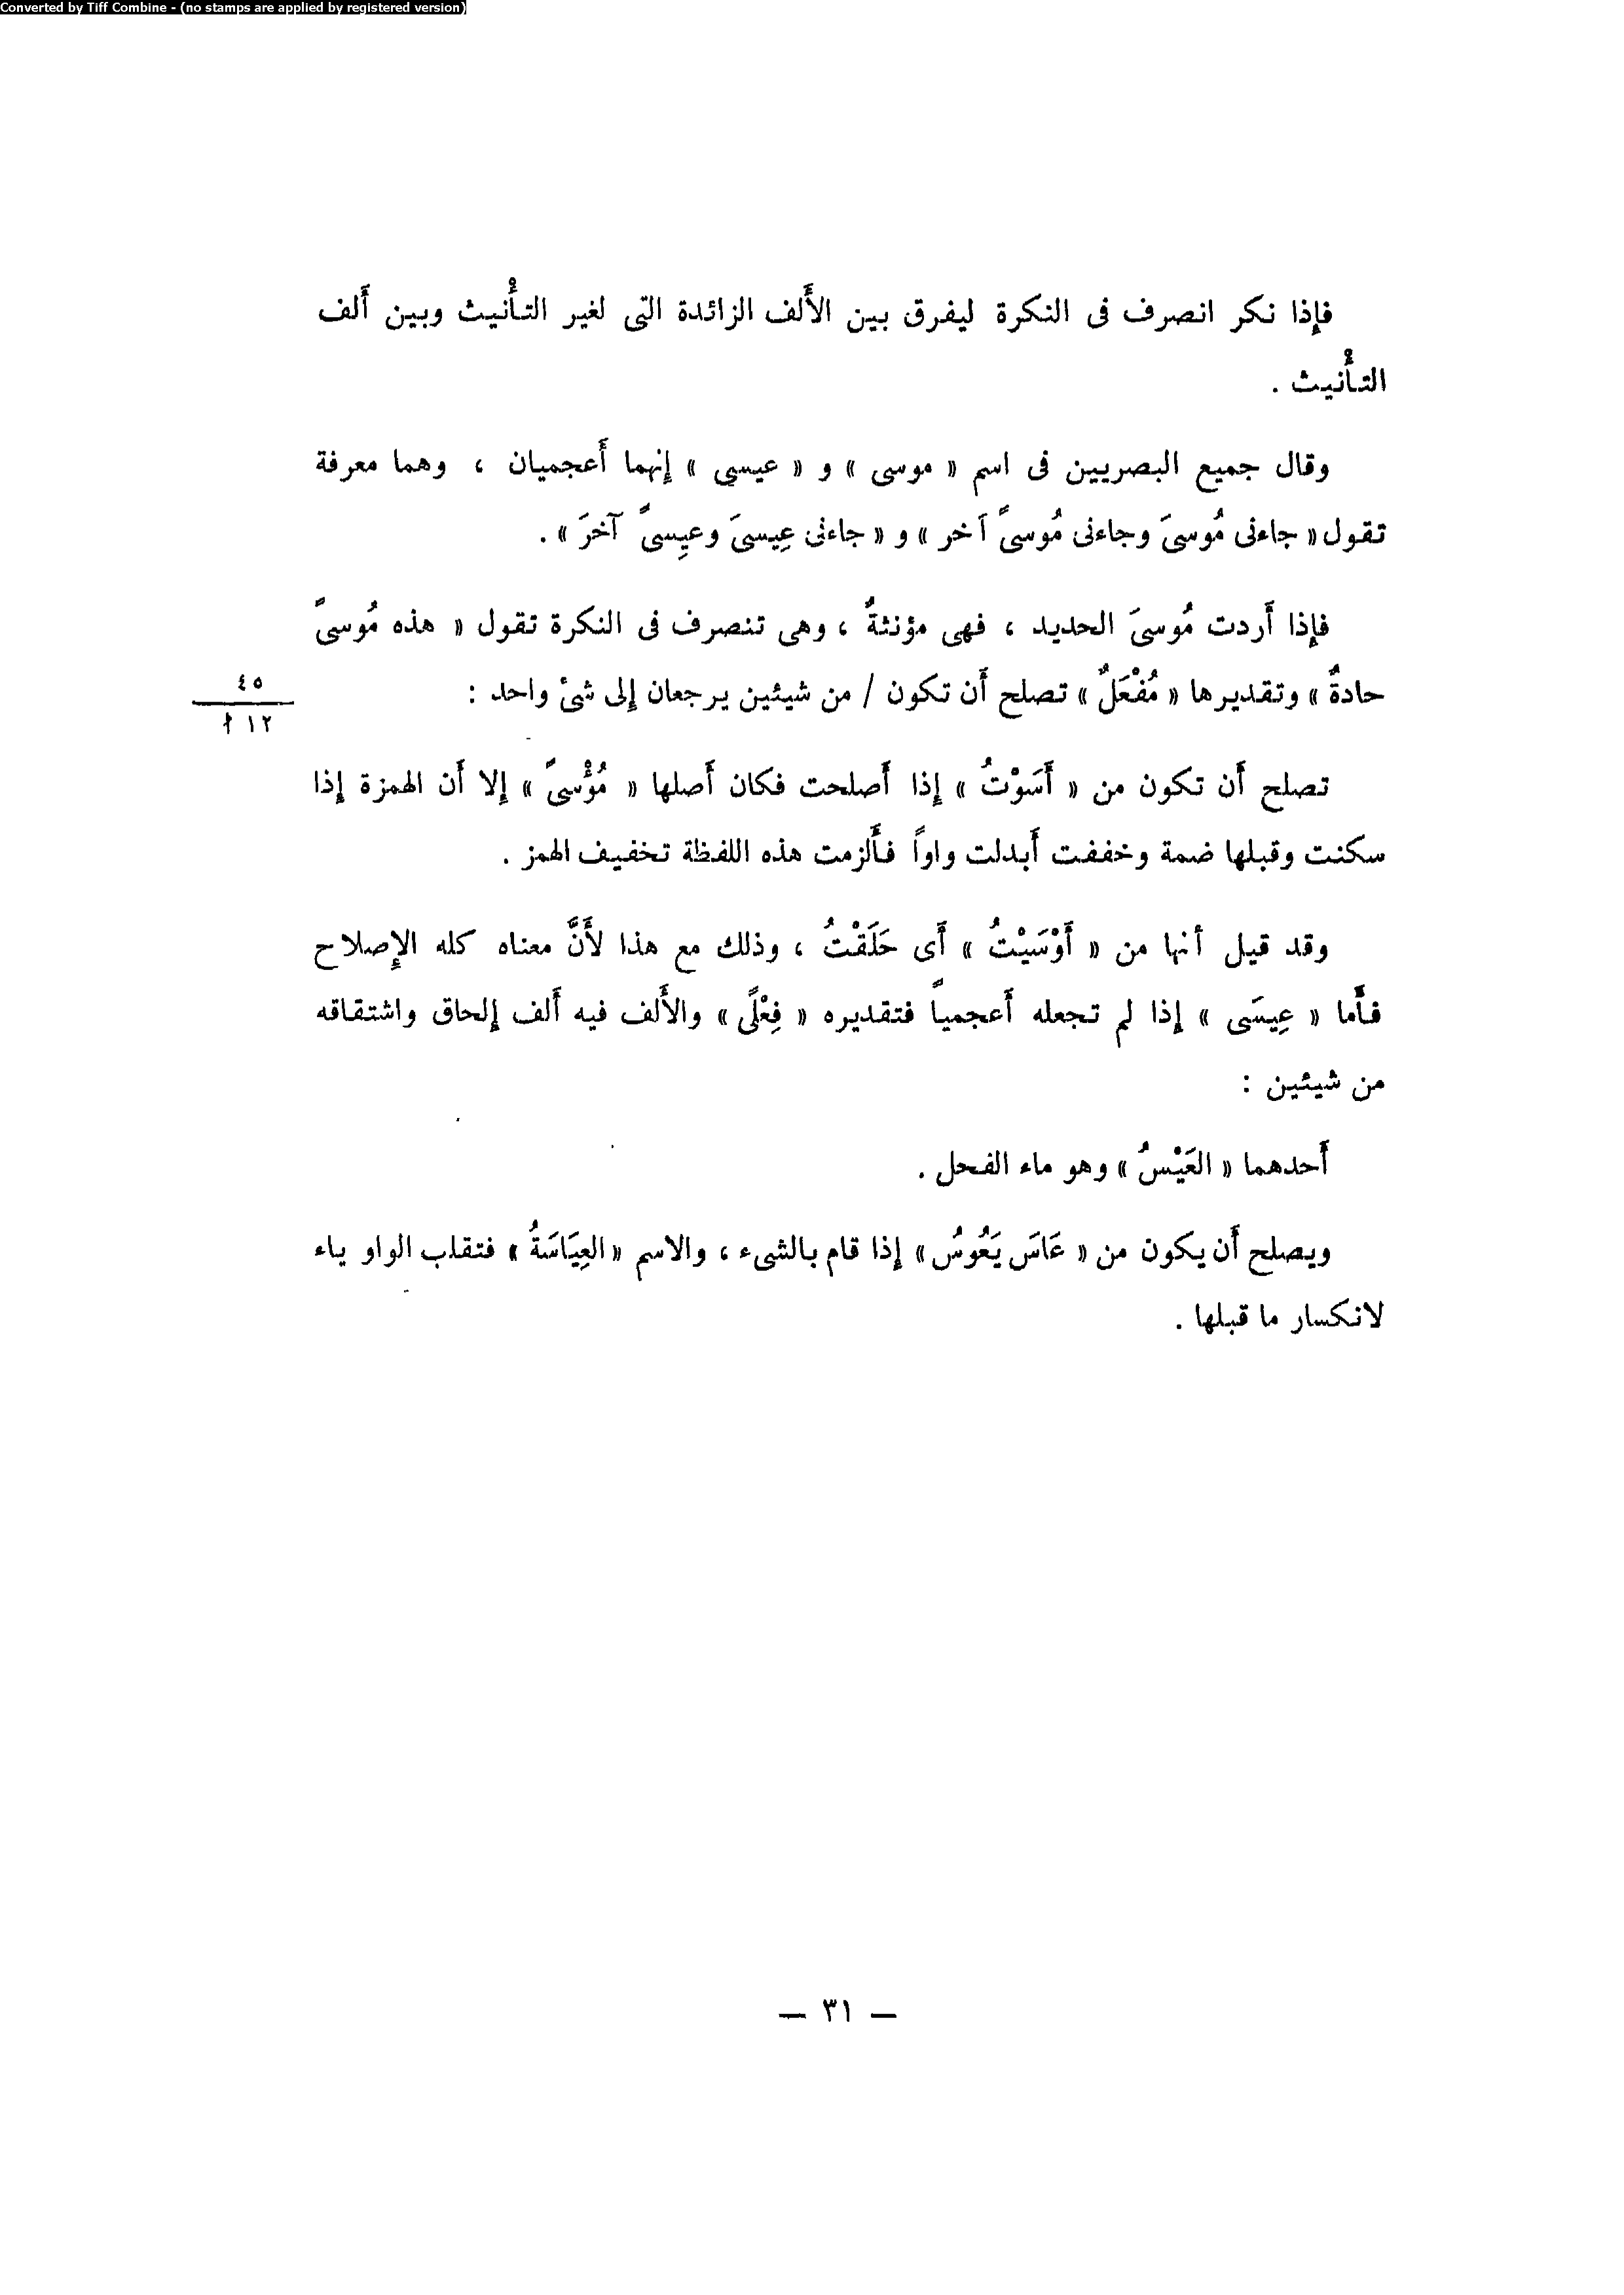 Converted by Tiff Combine - (no stamps are applied by registered version)
فإذا نكر انصرف فى النكرة ليفرق بين الأَلف الزائدة التى لغير التأْنيث وبين أَلف
التأْنيث .
وقال جميع البصريين فى اسم « موسى » و « عيسى » إنهما أَعجميان ، وهما معرفة
تقول « جاءنى مُوسىَ وجاءنى مُوسىً آخر » و « جاءنى عِيسىَ وعيِسىً آخرَ » .
فإذا أَردت مُوسىَ الحديد ، فهى مؤنثةٌ ، وهى تنصرف فى النكرة تقول « هذه مُوسىً
حادةٌ » وتقديرها « مُفْعَلٌ » تصلح أَن تكون / من شيئين يرجعان إلى شئ واحد :
٤٥
١٢ أ
تصلح أَن تكون من « أَسَوْتُ » إذا أَصلحت فكان أَصلها « مُؤْسىً » إلا أَن الهمزة إذا
سكنت وقبلها ضمة وخففت أَبدلت واواً فأَلزمت هذه اللفظة تخفيف الهمز .
وقد قيل أنها من « أَوْسَيْتُ » أَى حَلَقْتُ ، وذلك مع هذا لأَنَّ معناه كله الإِصلاح
فأَما « عِيسَى » إذا لم تجعله أَعجمياً فتقديره « فِعْلًى » والأَلف فيه أَلف إلحاق واشتقاقه
من شيئين :
أَحدهما « العَيْسُ » وهو ماء الفحل .
ويصلح أَن يكون من « عَاسَ يَعُوسُ » إذا قام بالشىء ، والاسم « العِيَاسَةُ » فتقلب الواو ياء
لانكسار ما قبلها .
— ٣١ —